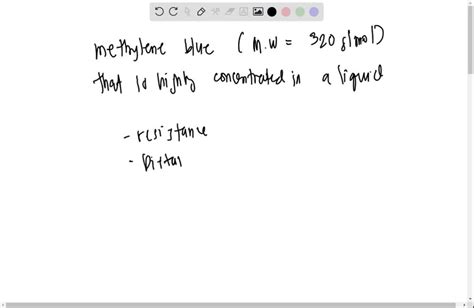 methylene blue ( M.W = 320 g/mol)
that is highly concentrated in a liquid
- resistance
- Distan